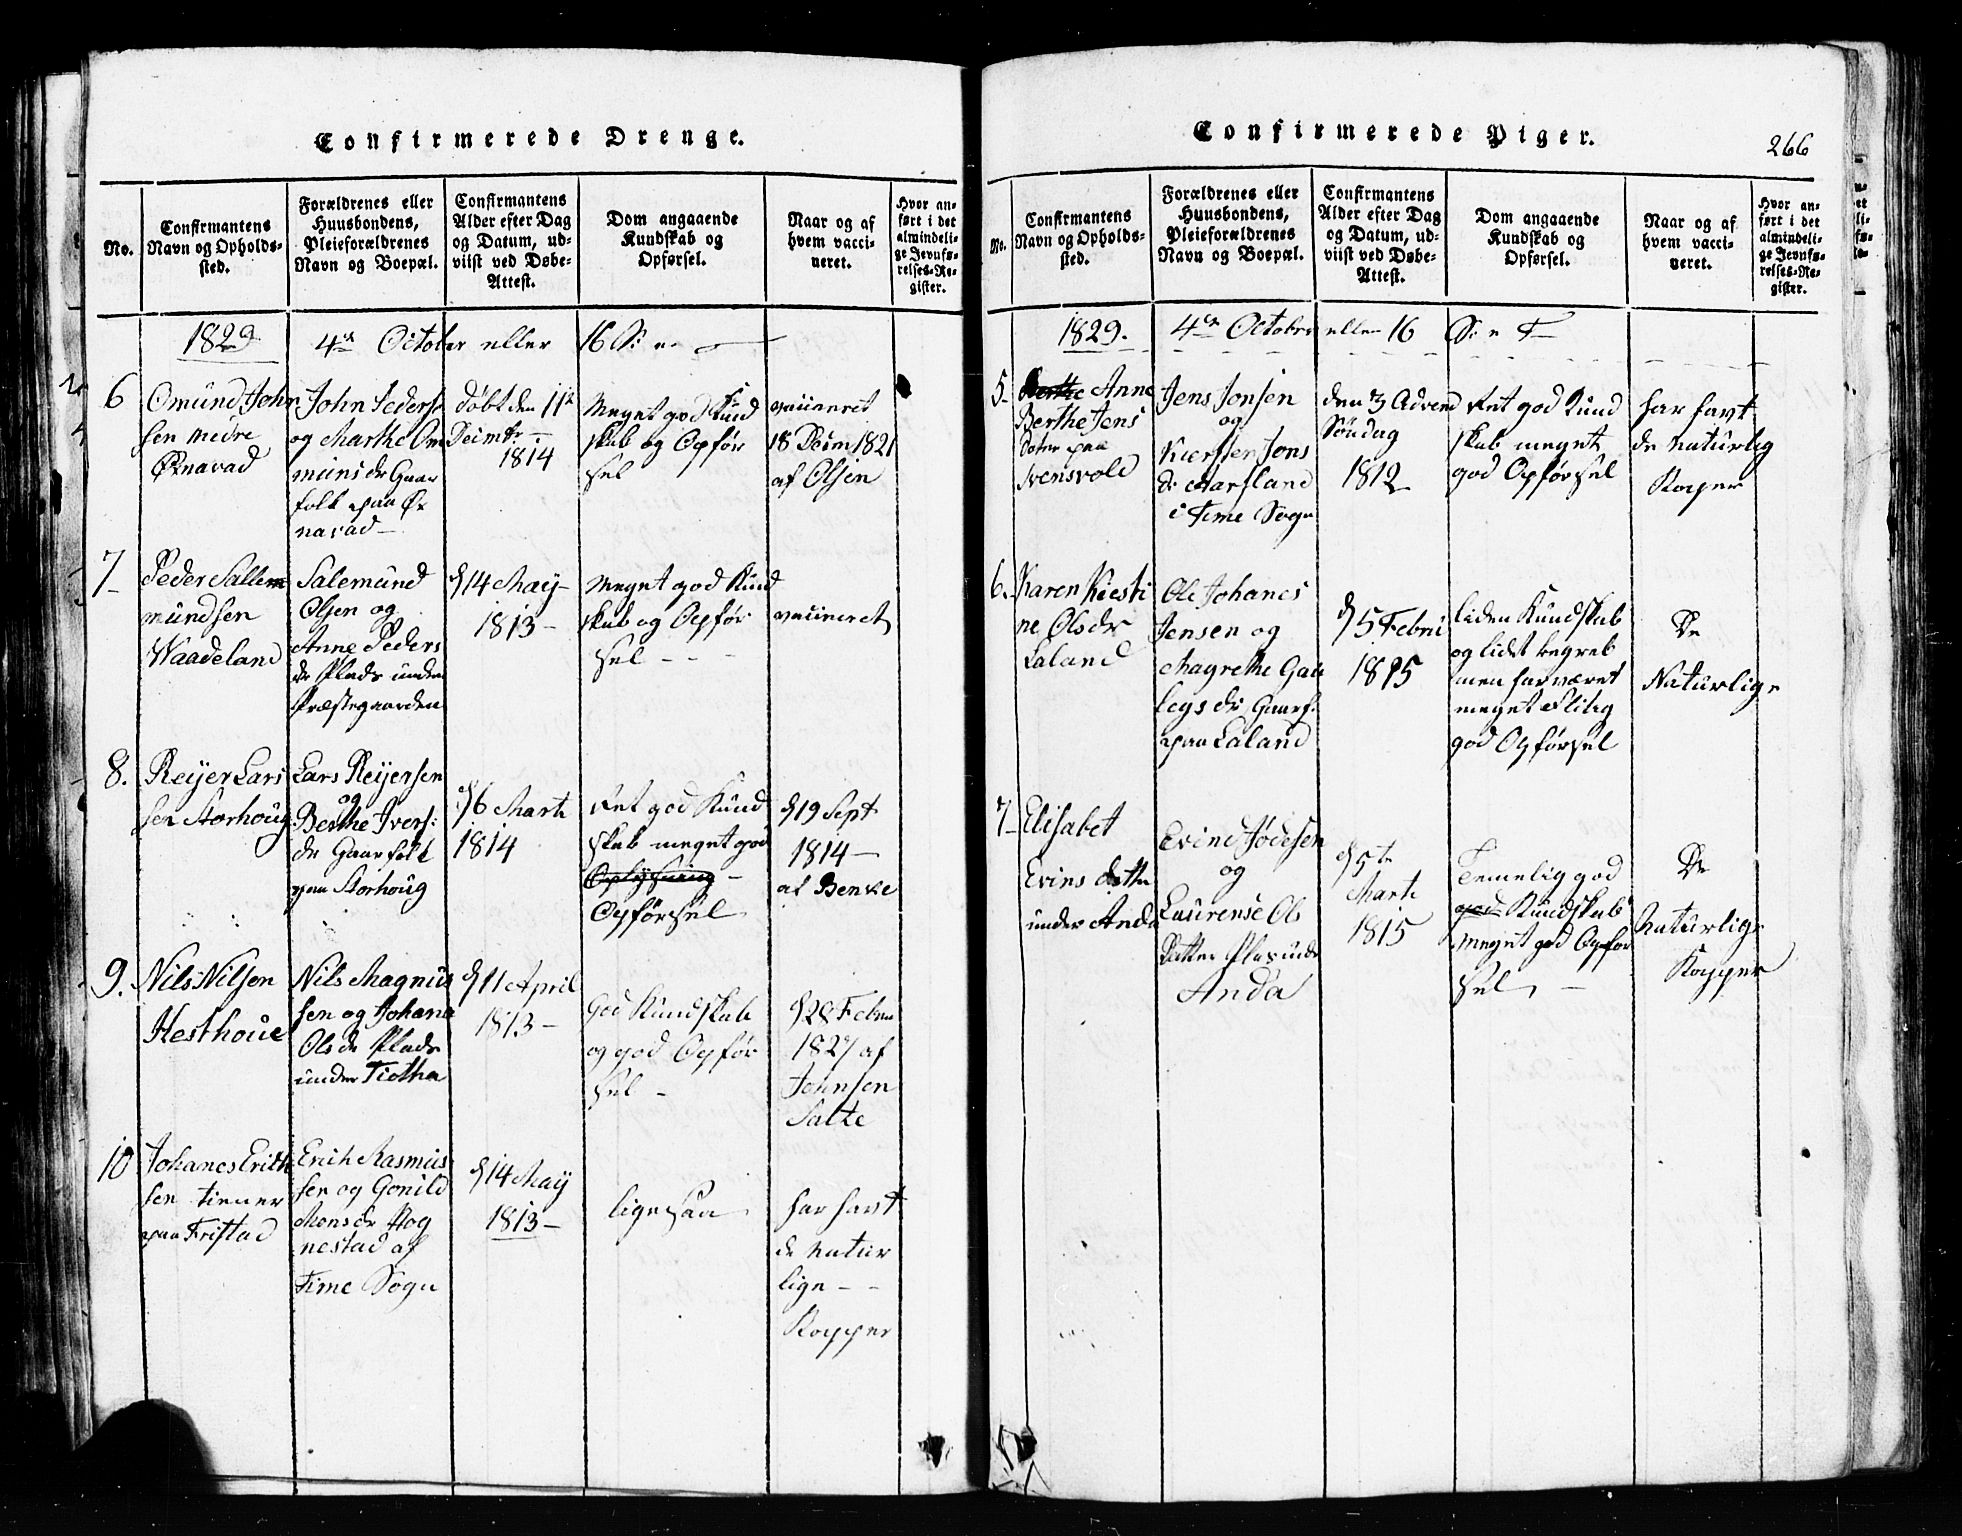 Confirmerede Drenge.
No.
Confirmantens
Navn og Opholds-
sted.
Forældrenes eller
Huusbondens,
Pleieforældrenes
Navn og Boepæl.
Confirmantens
Alder efter Dag
og Datum, ud-
viist ved Døbe-
Attest.
Dom angaaende
Kundskab og
Opførsel.
Naar og af
hvem vacci-
neret.
Hvor an-
ført i det
almindeli-
ge Jevnfø-
relses-Re-
gister.
1829 4de October eller 16 S:
6
Omund John
sen nedre
Øxnavad
John Peders
og Marthe Om
munds dr Gaar
folk paa Øx
navad
døbt den 11te
Decembr
1814
Meget god Kund
skab og Opfør
sel
vaccineret
18 Decem 1821
af Olsen
7
Peder Sallem
mundsen
Waadeland
Salemund
Olsen og
Anne Peders
dr Plads under
Præstegaarden
d 14 May
1813
Meget god Kund
skab og Opfør
sel
vaccineret
8.
Reijer Lars
sen Storhoug
Lars Reijersen
og
Berthe Ivers
dr Gaarfolk
paa Storhoug
d 6 Marti
1814
Ret god Kund
skab meget god
Oplysning
Opførsel
d 19 Sept
1814
af Benke
9.
Nils Nilsen
Hesthoue
Nils Magnus
sen og Johana
Ols dr Plads
under Tiotha
d 11 April
1813
God Kundskab
og god Opfør
sel
d 28 Febru
1827 af
Johnsen
Salte
10
Johanes Erich
sen tiener
paa Fristad
Erich Rasmus
sen og Gonild
Mons dr Hog
nestad af
Time Sogn
d 14 May
1813
ligesaa
har havt
de natur
lige
Kopper
Confirmerede Piger.
266
No.
Confirmantens
Navn og Opholds-
sted.
Forældrenes eller
Huusbondens,
Pleieforældrenes
Navn og Boepæl.
Confirmantens
Alder efter Dag
og Datum, ud-
viist ved Døbe-
Attest.
Dom angaaende
Kundskab og
Opførsel.
Naar og af
hvem vacci-
neret.
Hvor an-
ført i det
almindeli-
ge Jevnfø-
relses-Re-
gister.
1829. 4de October eller 16 S: e T
5
Berthe Anne
Berthe Jens
Dater paa
Svensvold
Jens Jonsen
og
Kiersten Jons
dr Aarsland
i Time Sogn
den 3 Advend
Søndag
1812
Ret god Kund
skab meget
god Opførsel
har havt
de naturlig
Kopper
6.
Karen Kiesti
ne Ols dr
Laland
Ole Johanes
Jensen og
Magrethe Gau
legs dr Gaarf.
paa Laland
d 5 Febru
1815
liden Kundskab
og lidet begreb
men har været
meget flitig
god Opførsel
De
Naturlige
7
Elisabet
Evins datter
under Anda
Evind Jødesen
og
Laurense Ols
Datter Plas unde
Anda
d 5te
Marti
1815
Temelig god
god Kundskab
meget god Opfør
sel
De
Naturlige
Kopper